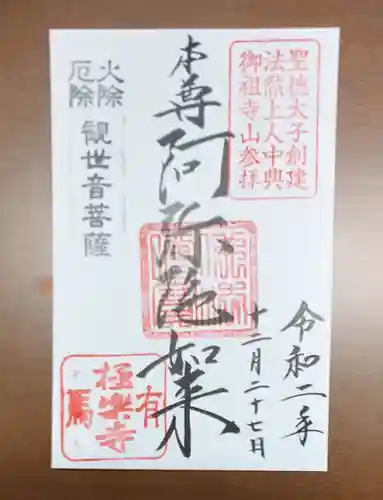 聖徳太子創建
法然上人中興
御祖寺山参拝
令和二年
十二月二十七日
本尊 阿弥陀如来
火除
厄除
観世音菩薩
有馬
極楽寺